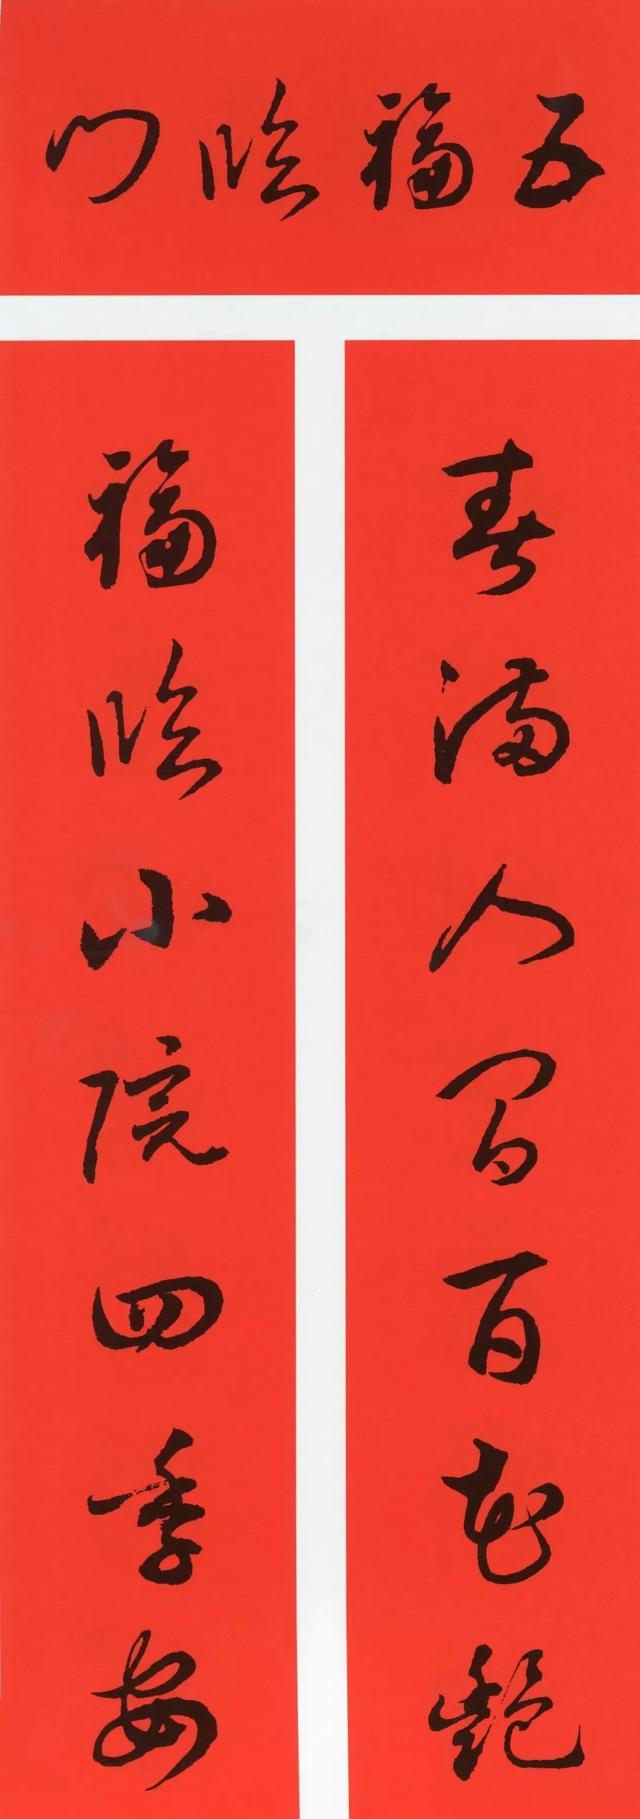 五福临门
春满人间百花艳
福临小院四季安